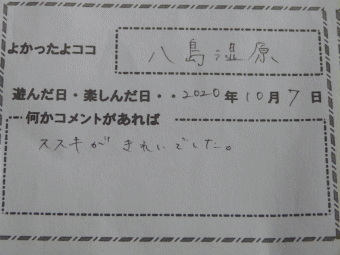 よかったよココ 八島湿原
遊んだ日・楽しんだ日・・2020年10月7日
何かコメントがあれば
ススキがきれいでした。